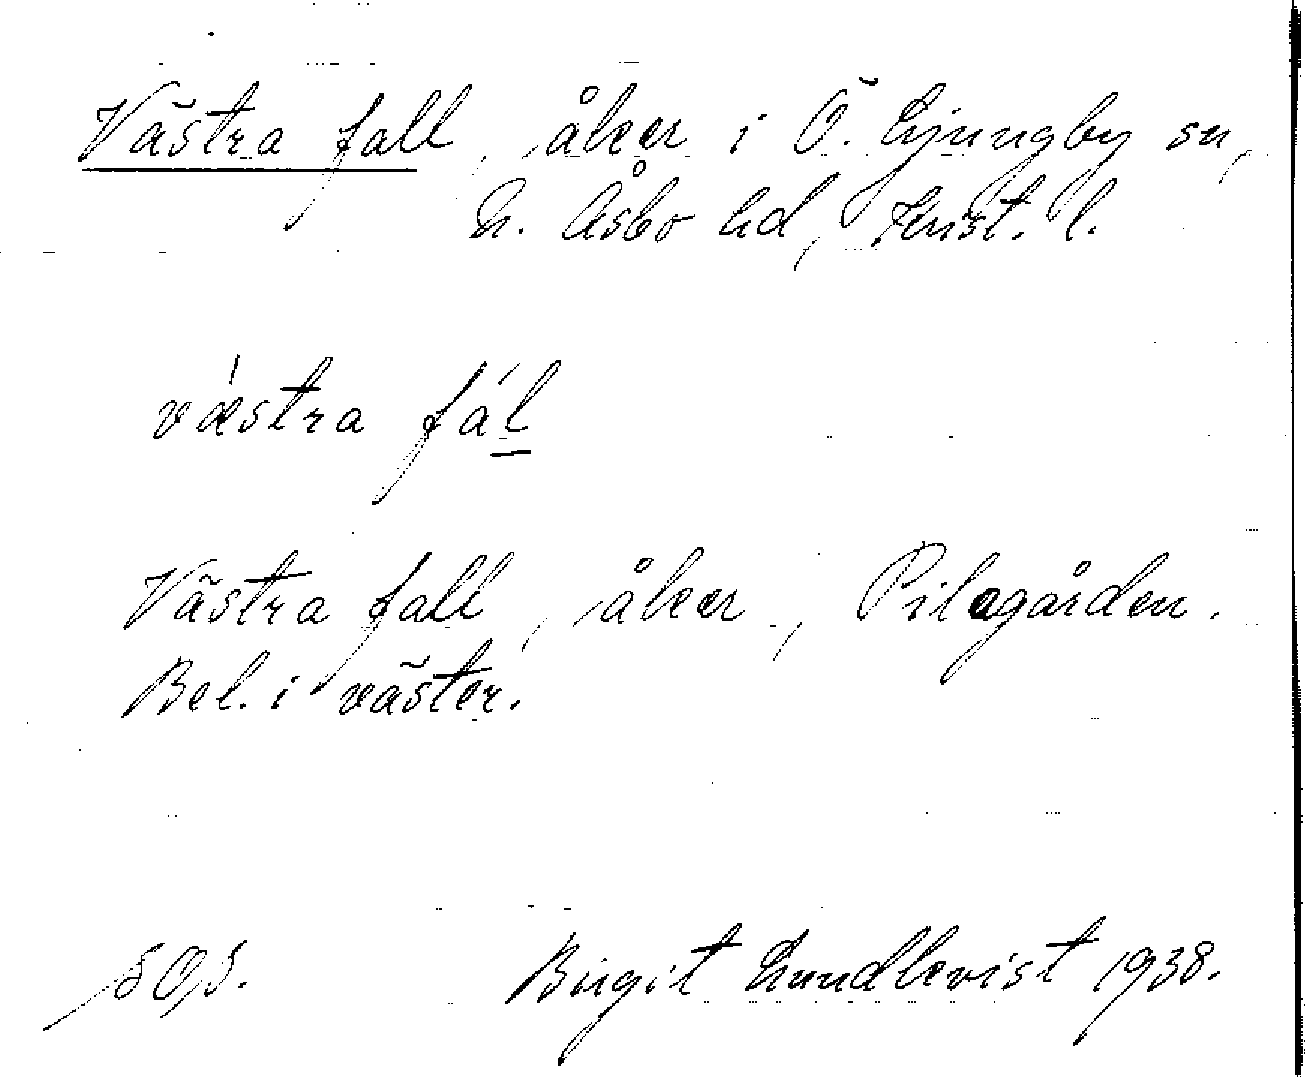 Västra fall, åker i Ö. Ljungby sn,
N. Åsbo hd, Krist. l.
vä́stra fál
Västra fall, åker, Pilagården.
Bel. i väster.
Birgit Lundkvist 1938.